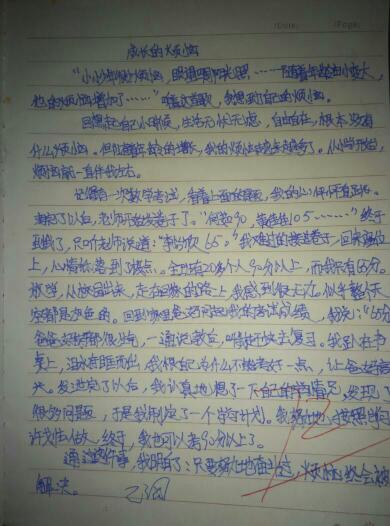 成长的烦恼
“小小少年很少烦恼，眼望四周阳光照……随着年龄由小变大，
他的烦恼增加了……”唱这首歌，我想到了自己的烦恼。
回想起自己小时候，生活无忧无虑，自由自在，根本没有
什么烦恼。但随着年龄的增长，我的烦恼也越来越多了。从小学开始，
烦恼就一直伴我左右。
记得有一次数学考试，看着上面的题，我的心
了以后，老师开始发卷子了。“何 90，黄 105……”终于
到我了，只听老师说道：“ 65。”我难过的接过卷子，回到座位
上，心情低落到了极点。全班有20多个人90分以上，而我只有65分。
放学，从校园出来，走在回家的路上我感到很无力。似乎整个天
空都是灰色的。回到家里爸妈问起我的考试成绩，我说：“65分”
爸爸妈妈都很生气，一通说教后，叫我赶快去复习。我趴在书
桌上，泪水夺眶而出，我恨自己为什么不能考好一点，让爸妈高
兴。发泄完了以后，我认真地想了一下自己的学习情况，发现了
很多问题，于是我制定了一个学习计划。我努力地按照学习
计划去做，终于，我也可以考90分以上了。
通过这件事，我明白了：只要努力地奋斗过，烦恼终会被
解决。